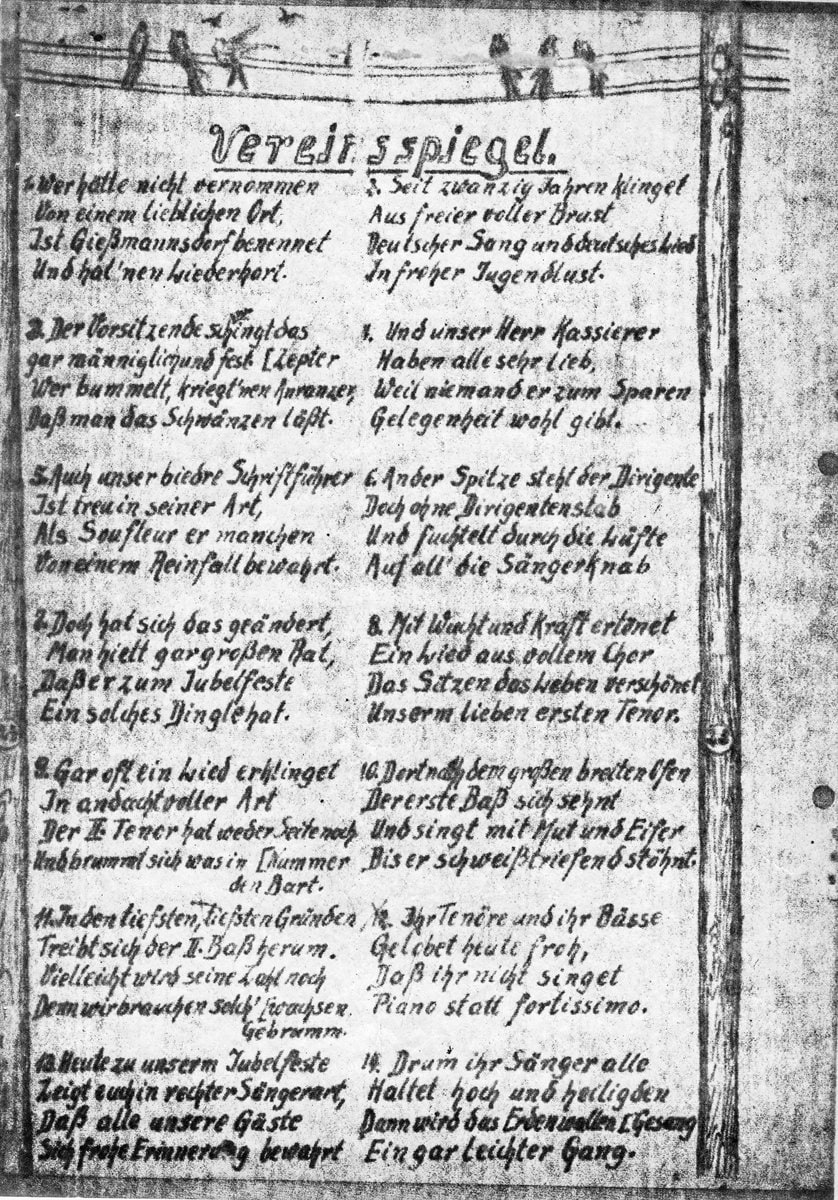 Vereinsspiegel.
1. Wer hätte nicht vernommen
Von einem lieblichen Ort,
Ist Gießmannsdorf benennet
Und hat 'nen Liederhort.
2. Seit zwanzig Jahren klinget
Aus freier voller Brust
Deutscher Sang und deutsches Lied
In froher Jugendlust.
3. Der Vorsitzende schwingt das
gar männiglich und fest. [Zepter
Wer bummelt, kriegt 'nen Anranzer,
Daß man das Schwänzen läßt.
4. Und unser Herr Kassierer
Haben alle sehr lieb,
Weil niemand er zum Sparen
Gelegenheit wohl gibt.
5. Auch unser biedre Schriftführer
Ist treu in seiner Art,
Als Soufleur er manchen
Von einem Reinfall bewahrt.
6. An der Spitze steht der Dirigente
Doch ohne Dirigentenstab
Und fuchtelt durch die Lüfte
Auf all' die Sängerknab
7. Doch hat sich das geändert,
Man hielt gar großen Rat,
Daß er zum Jubelfeste
Ein solches Dingle hat.
8. Mit Wucht und Kraft ertönet
Ein Lied aus vollem Chor
Das Sitzen das Leben verschönet
Unserm lieben ersten Tenor.
9. Gar oft ein Lied erklinget
In andachtvoller Art
Der II. Tenor hat weder Seite noch
Und brummt sich was in [Nummer
den Bart.
10. Dort nach dem großen breiten Ofen
Der erste Baß sich sehnt
Und singt mit Mut und Eifer
Bis er schweißtriefend stöhnt.
11. In den tiefsten, tiefsten Gründen
Treibt sich der II. Baß herum.
Vielleicht wird seine Zahl noch
Denn wir brauchen solch' [wachsen
Gebrumm.
12. Ihr Tenöre und ihr Bässe
Gelobet heute froh,
Daß ihr nicht singet
Piano statt fortissimo.
13. Heute zu unserm Jubelfeste
Zeigt euch in rechter Sängerart,
Daß alle unsere Gäste
Sich frohe Erinnerung bewahrt
14. Drum ihr Sänger alle
Haltet hoch und heilig den
Dann wird das Erdenwallen [Gesang
Ein gar leichter Gang.